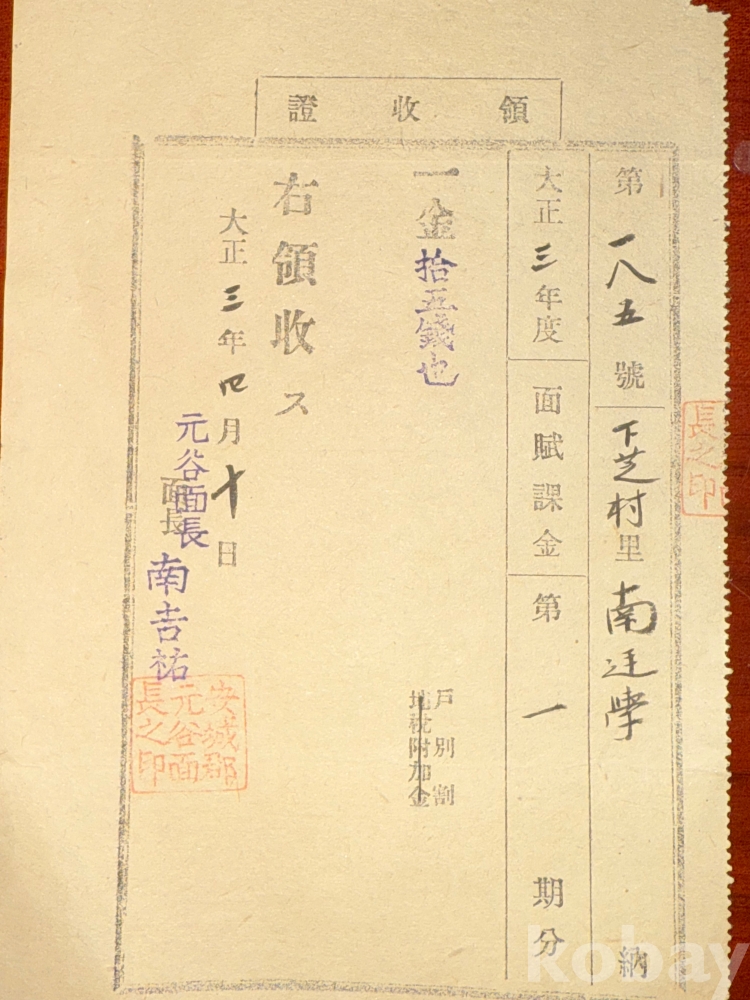 領收證
第一八五號 下芝村里 南廷學 納
大正三年度 面賦課金 第一期分
一金拾五錢也
戶別割
地稅附加金
右領收ス
大正三年四月十日
面長
元谷面長 南吉祐
安城郡
元谷面
長之印
長之印
kobay